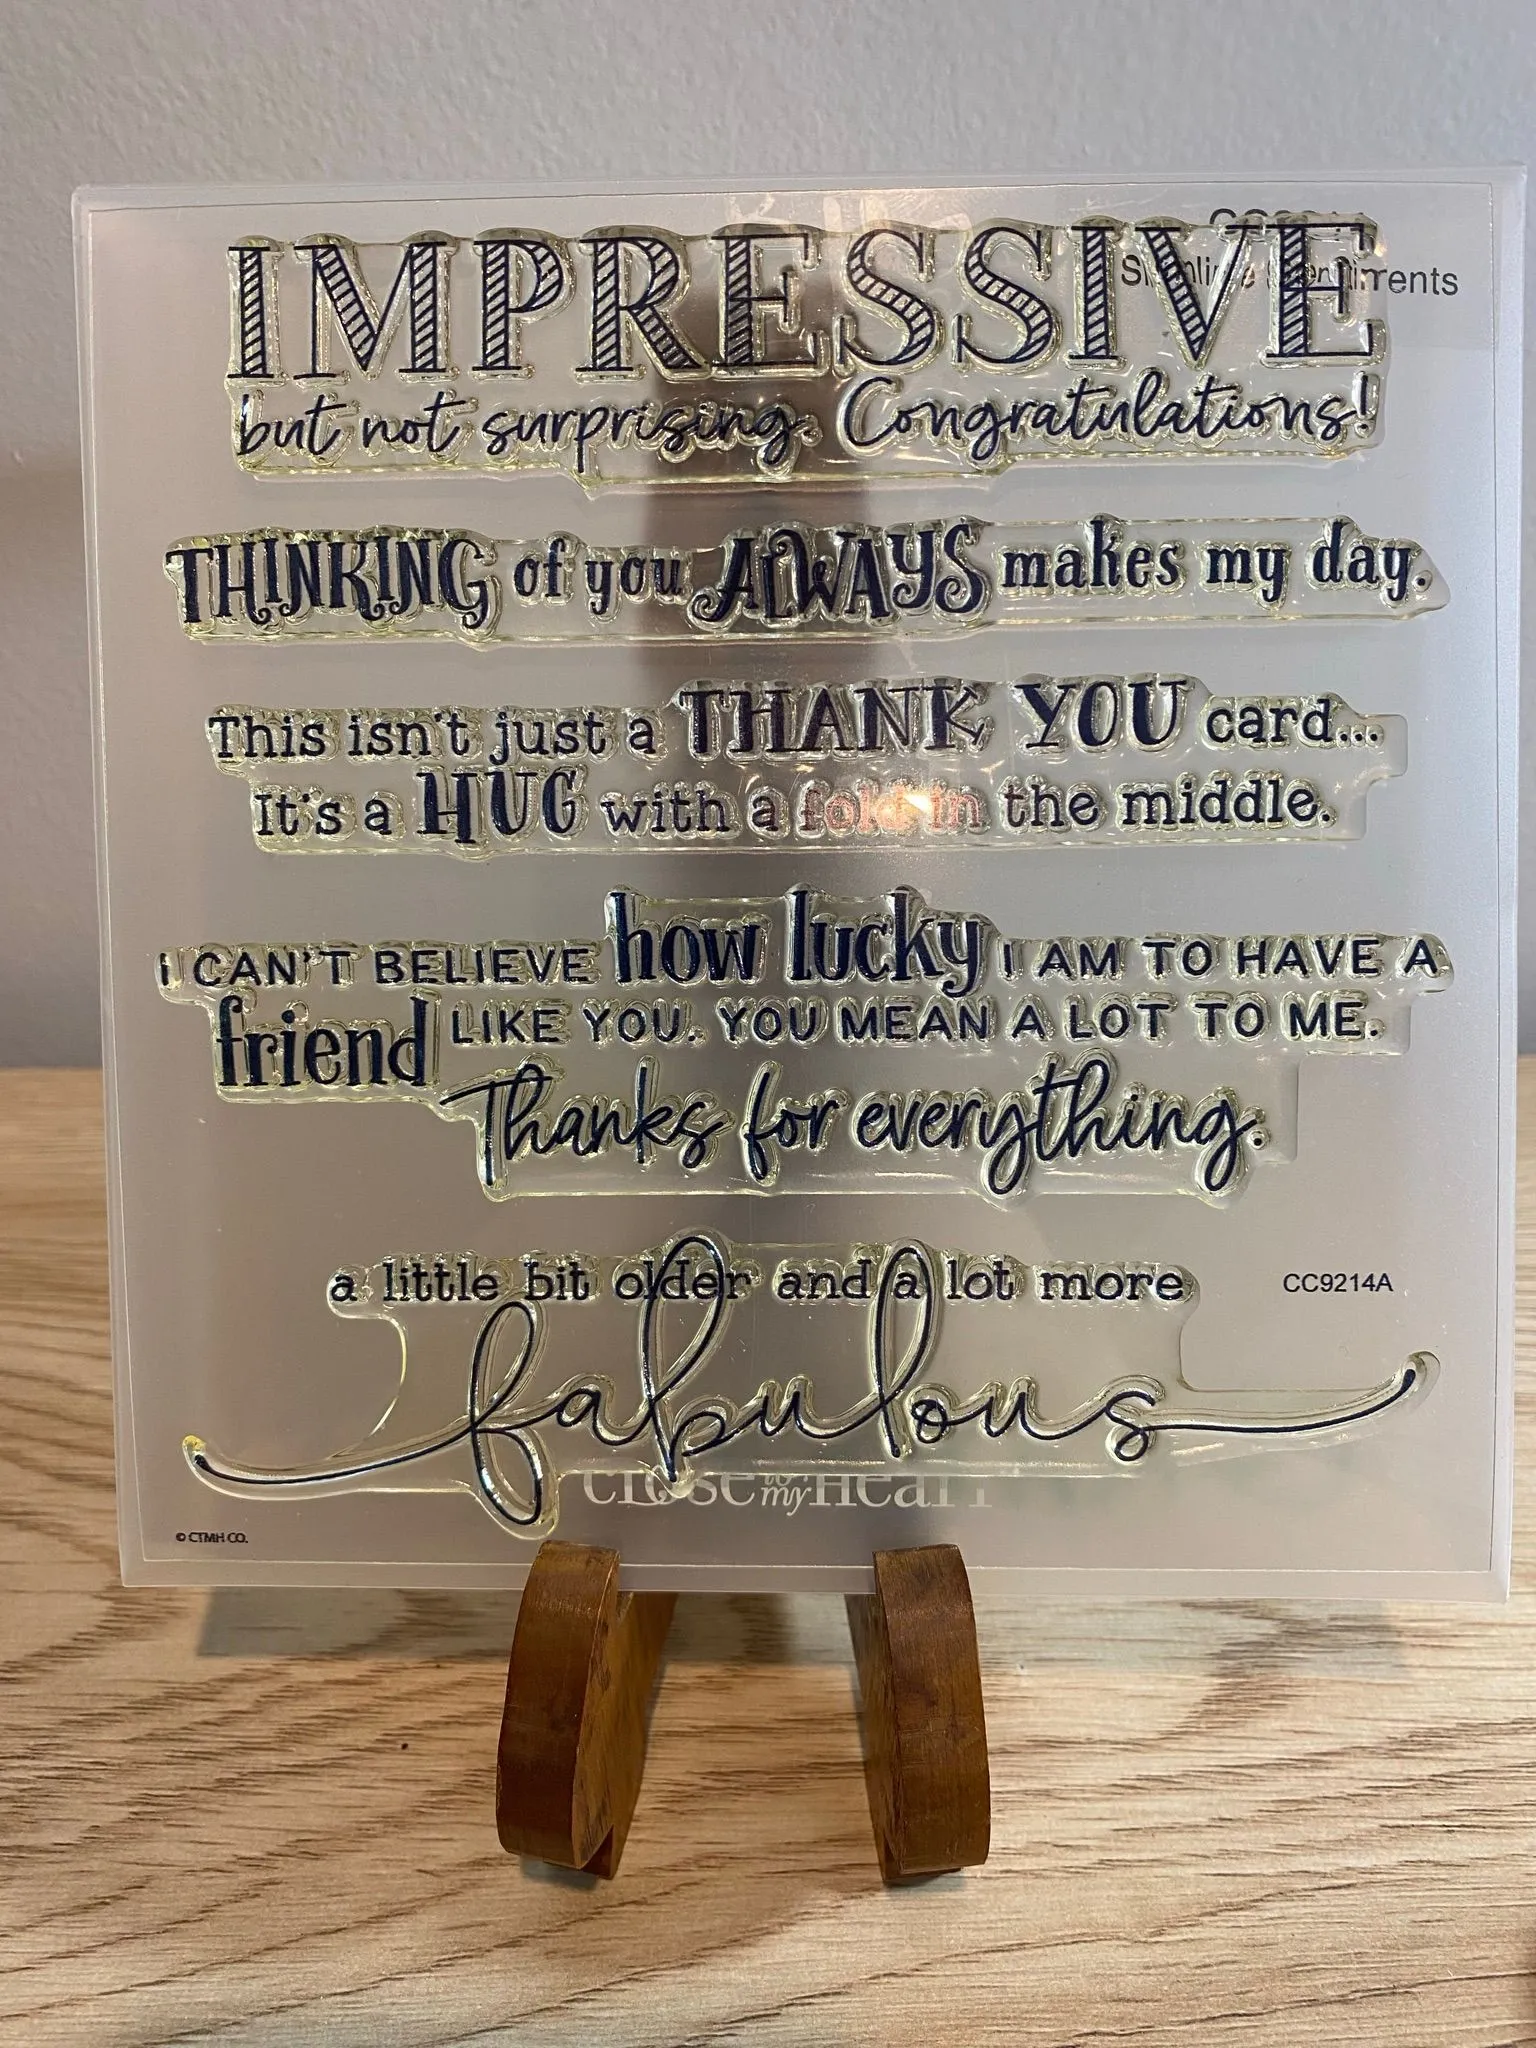 Slimline Sentiments
IMPRESSIVE
but not surprising. Congratulations!
THINKING of you ALWAYS makes my day.
This isn't just a THANK YOU card...
It's a HUG with a fold in the middle.
I CAN'T BELIEVE how lucky I AM TO HAVE A
friend LIKE YOU. YOU MEAN A LOT TO ME.
Thanks for everything.
a little bit older and a lot more
CC9214A
fabulous
close to my Heart
© CTMH CO.